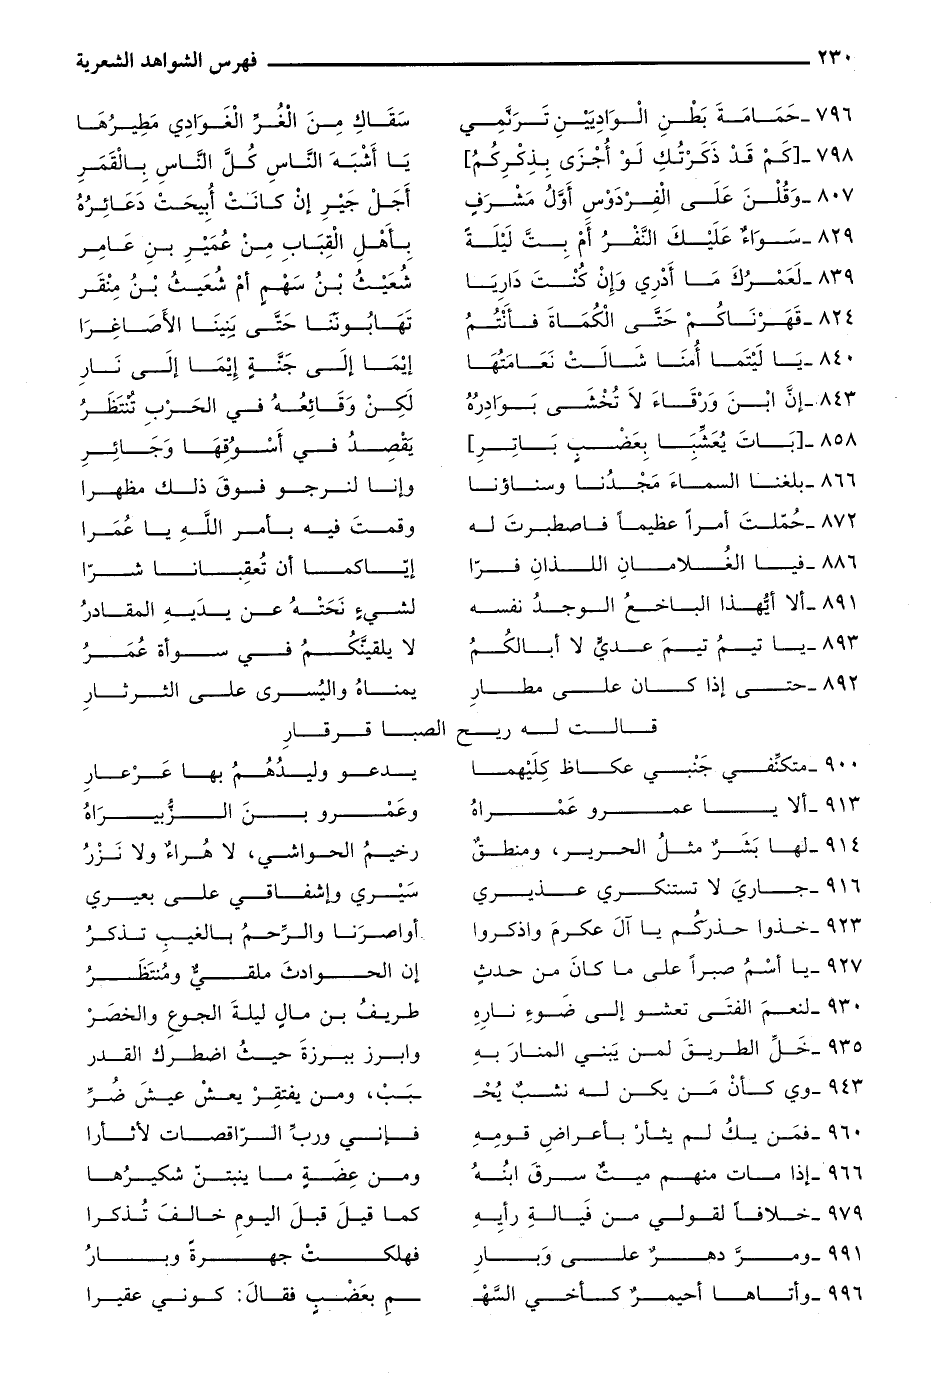 ٢٣٠ فهرس الشواهد الشعرية
٧٩٦ـ حَمَامَةَ بَطْنِ الوَادِيَيْنِ تَرَنَّمِي سَقَاكِ مِنَ الغُرِّ الغَوَادِي مَطِيرُهَا
٧٩٨ـ [كَمْ قَدْ ذَكَرْتُكِ لَوْ أُجْزَى بِذِكْرِكُمْ] يَا أَشْبَهَ النَّاسِ كُلِّ النَّاسِ بِالقَمَرِ
٨٠٧ـ وَقُلْنَ عَلَى الفِرْدَوْسِ أَوَّلُ مَشْرَبٍ أَجَلْ جَيْرِ إِنْ كَانَتْ أُبِيحَتْ دَعَاثِرُهْ
٨٢٩ـ سَوَاءٌ عَلَيْكَ النَّفْرُ أَمْ بِتَّ لَيْلَةً بِأَهْلِ القِبَابِ مِنْ عُمَيْرِ بنِ عَامِرِ
٨٣٩ـ لَعَمْرُكَ مَا أَدْرِي وَإِنْ كُنْتُ دَارِيَا شُعَيْثُ بْنُ سَهْمٍ أَمْ شُعَيْثُ بْنُ مِنْقَرِ
٨٢٤ـ قَهَرْنَاكُمْ حَتَّى الكُمَاةَ فَأَنْتُمُ تَهَابُونَنَا حَتَّى بَنِينَا الأَصَاغِرَا
٨٤٠ـ يَا لَيْتَمَا أُمُّنَا شَالَتْ نَعَامَتُهَا إِيْمَا إِلَى جَنَّةٍ إِيْمَا إِلَى نَارِ
٨٤٣ـ إِنَّ ابْنَ وَرْقَاءَ لاَ تُخْشَى بَوَادِرُهُ لَكِنْ وَقَائِعُهُ فِي الحَرْبِ تُنْتَظَرُ
٨٥٨ـ [بَاتَ يُعَشِّيهَا بِعَضْبٍ بَاتِرِ] يَقْصِدُ فِي أَسْوُقِهَا وَجَائِرِ
٨٦٦ـ بلغنا السماءَ مَجْدُنا وسناؤنا وإنا لنرجو فوقَ ذلك مظهرا
٨٧٢ـ حُمِّلتَ أمراً عظيماً فاصطبرت له وقمت فيه بأمرِ اللَّهِ يا عُمَرا
٨٨٦ـ فيا الغُلامانِ اللذانِ فَرَّا إيّاكما أن تُعقِبانا شرّا
٨٩١ـ ألا أيُّهذا الباخعُ الوجدُ نفسَه لشيءٍ نَحَتْهُ عن يديه المقادرُ
٨٩٣ـ يا تيمُ تيمَ عديٍّ لا أبالكمُ لا يلقينَّكُمُ في سوأةٍ عُمَرُ
٨٩٢ـ حتى إذا كان على مطارِ يمناهُ واليُسرى على الثرثارِ
قالت له ريحُ الصبا قرقارِ
٩٠٠ـ متكنِّفي جَنْبي عكاظَ كِلَيْهما يدعو وليدُهُمُ بها عَرْعارِ
٩١٣ـ ألا يا عمرو عَمْراهُ وعَمْرو بنَ الزُّبيراهُ
٩١٤ـ لها بَشَرٌ مثلُ الحريرِ، ومنطقٌ رخيمُ الحواشي، لا هُراءٌ ولا نَزْرُ
٩١٦ـ جاريَ لا تستنكري عذيري سَيْري وإشفاقي على بعيري
٩٢٣ـ خذوا حذركُم يا آلَ عكرمَ واذكروا أواصرَنا والرِّحمُ بالغيبِ تذكرُ
٩٢٧ـ يا أسمُ صبراً على ما كانَ من حدثٍ إن الحوادثَ ملقيٌّ ومُنتظَرُ
٩٣٠ـ لنعم الفتَى تعشو إلى ضَوءِ نارِهِ طريفُ بن مالٍ ليلةَ الجوعِ والخصَرْ
٩٣٥ـ خَلِّ الطريقَ لمن يَبني المنارَ به وابرز ببرزةَ حيثُ اضطرك القدر
٩٤٣ـ وي كأنْ مَن يكن له نشبٌ يُحْـ ـبَبْ، ومن يفتقرْ يعشْ عيشَ ضُرِّ
٩٦٠ـ فمَن يكُ لم يثأرْ بأعراضِ قومِهِ فإني وربِّ الراقصاتِ لأثأرا
٩٦٦ـ إذا مات منهم ميتٌ سرقَ ابنُه ومن عِضَةٍ ما ينبتنَّ شَكيرُها
٩٧٩ـ خلافاً لقولي من فَيالةِ رأيِه كما قيلَ قبلَ اليومِ خالفَ تُذكرا
٩٩١ـ ومرَّ دهرٌ على وَبارِ فهلكتْ جهرةً وبارُ
٩٩٦ـ وأتاها أُحيمرٌ كأخي السَّهْـ ـم بعَضْبٍ فقالَ: كوني عقيرا